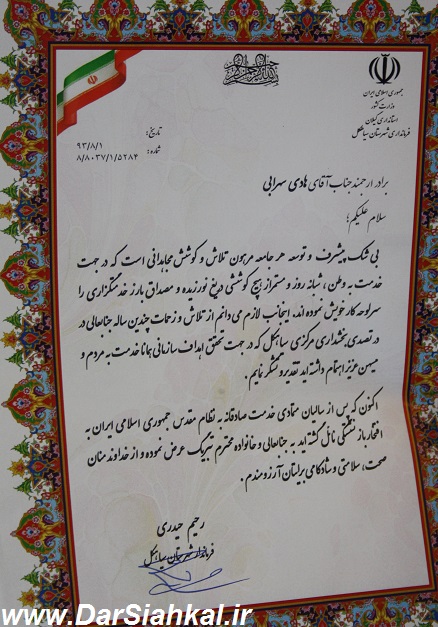 جمهوری اسلامی ایران
وزارت کشور
استانداری گیلان
فرمانداری شهرستان سیاهکل
تاریخ: ۹۳/۸/۱
شماره: ۸/۸۰۳۷/۱/۵۲۸۴
برادر ارجمند جناب آقای هادی سهرابی
سلام علیکم؛
بی شک پیشرفت و توسعه هر جامعه مرهون تلاش و کوشش مجاهدانی است که در جهت
خدمت به وطن، شبانه روز و مستمر از هیچ کوششی دریغ نورزیده و مصداق بارز خدمتگزاری را
سرلوحه کار خویش نموده اند. اینجانب لازم می دانم از تلاش و زحمات چندین ساله جنابعالی در
تصدی بخشداری مرکزی سیاهکل که در جهت تحقق اهداف سازمانی همانا خدمت به مردم و
میهن عزیز اهتمام داشته اید تقدیر و تشکر نمایم.
اکنون که پس از سالیان متمادی خدمت صادقانه به نظام مقدس جمهوری اسلامی ایران به
افتخار بازنشستگی نائل گشته اید به جنابعالی و خانواده محترم تبریک عرض نموده و از خداوند منان
صحت، سلامتی و شادکامی برایتان آرزومندم.
رحیم حیدری
فرماندار شهرستان سیاهکل
www.DarSiahkal.ir